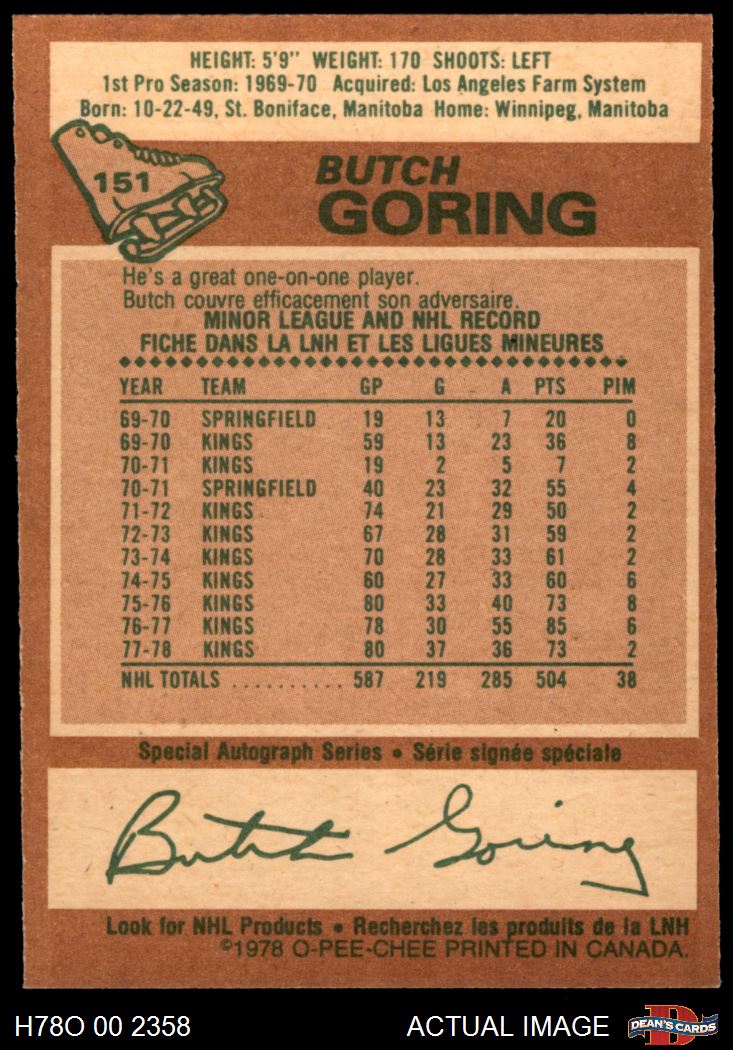 HEIGHT: 5'9" WEIGHT: 170 SHOOTS: LEFT
1st Pro Season: 1969-70 Acquired: Los Angeles Farm System
Born: 10-22-49, St. Boniface, Manitoba Home: Winnipeg, Manitoba
151
BUTCH
GORING
He's a great one-on-one player.
Butch couvre efficacement son adversaire.
MINOR LEAGUE AND NHL RECORD
FICHE DANS LA LNH ET LES LIGUES MINEURES
YEAR TEAM GP G A PTS PIM
69-70 SPRINGFIELD 19 13 7 20 0
69-70 KINGS 59 13 23 36 8
70-71 KINGS 19 2 5 7 2
70-71 SPRINGFIELD 40 23 32 55 4
71-72 KINGS 74 21 29 50 2
72-73 KINGS 67 28 31 59 2
73-74 KINGS 70 28 33 61 2
74-75 KINGS 60 27 33 60 6
75-76 KINGS 80 33 40 73 8
76-77 KINGS 78 30 55 85 6
77-78 KINGS 80 37 36 73 2
NHL TOTALS .......... 587 219 285 504 38
Special Autograph Series • Série signée spéciale
Butch Goring
Look for NHL Products • Recherchez les produits de la LNH
©1978 O-PEE-CHEE PRINTED IN CANADA.
H78O 00 2358 ACTUAL IMAGE
D
DEAN'S CARDS